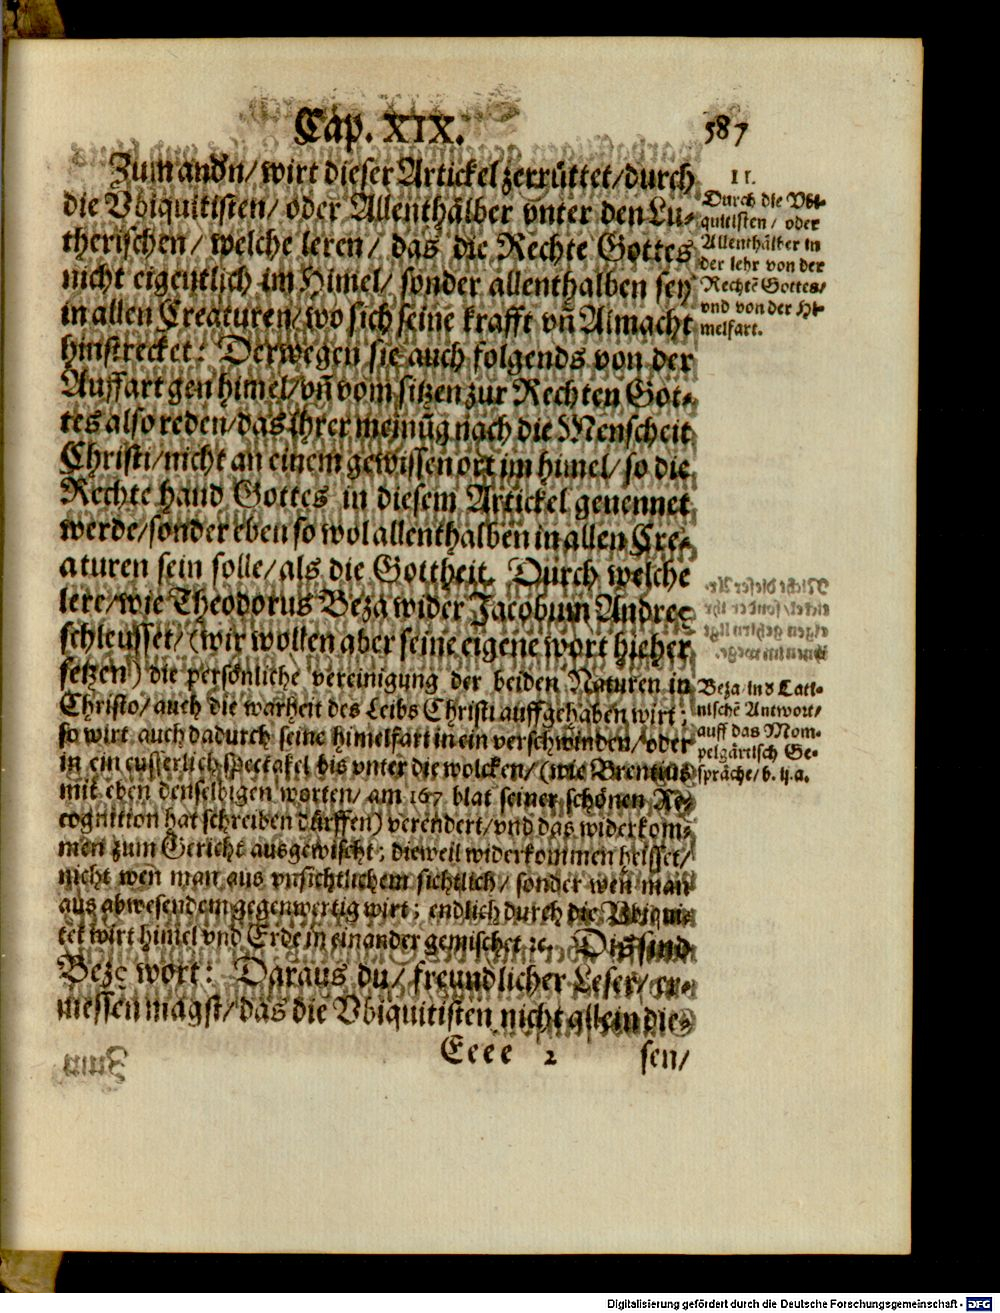 Cap. XIX.
587
Zum andn/ wirt dieser Artickel zerrüttet/ durch
die Vbiquitisten/ oder Allenthälber vnter den Lu-
therischen/ welche leren/ das die Rechte Gottes
nicht eigentlich im Himel/ sonder allenthalben sey
in allen Creaturen/ wo sich seine krafft vñ Almacht
hinstrecket: Derwegen sie auch folgends von der
Auffart gen himel/ vñ vom sitzen zur Rechten Got-
tes also reden/ das ihrer meinũg nach die Menscheit
Christi/ nicht an einem gewissen ort im himel/ so die
Rechte hand Gottes in diesem Artickel genennet
werde/ sonder eben so wol allenthalben in allen Cre-
aturen sein solle/ als die Gottheit. Durch welche
lere/ wie Theodorus Beza wider Jacobum Andreę
schleusset/ (wir wollen aber seine eigene wort hieher
setzen) die persönliche vereinigung der beiden Naturen in
Christo/ auch die warheit des Leibs Christi auffgehaben wirt:
so wirt auch dadurch seine himelfart in ein verschwinden/ oder
in ein eusserlich spectakel bis vnter die wolcken/ (wie Brentius
mit eben denselbigen worten/ am 167 blat seiner schönen Re-
cognition hat schreiben dürffen) verendert/ vnd das widerkom-
men zum Gericht ausgewischt: dieweil widerkommen heisset/
nicht weñ man aus vnsichtlichem sichtlich/ sonder weñ man
aus abwesendem gegenwertig wirt: endlich durch die Vbiqui-
tet wirt himel vnd Erde in einander gemischet ꝛc. Dis sind
Bezę wort: Daraus du/ freundlicher Leser/ er-
messen magst/ das die Vbiquitisten nicht allein die-
Eeee 2
sen/
II.
Durch die Vbi-
quitisten/ oder
Allenthälber in
der lehr von der
Rechtẽ Gottes/
vnd von der Hi-
melfart.
Beza in d Lati-
nischẽ Antwort/
auff das Mom-
pelgärtisch Ge-
spräche/ b. ij.a.
Digitalisierung gefördert durch die Deutsche Forschungsgemeinschaft - DFG